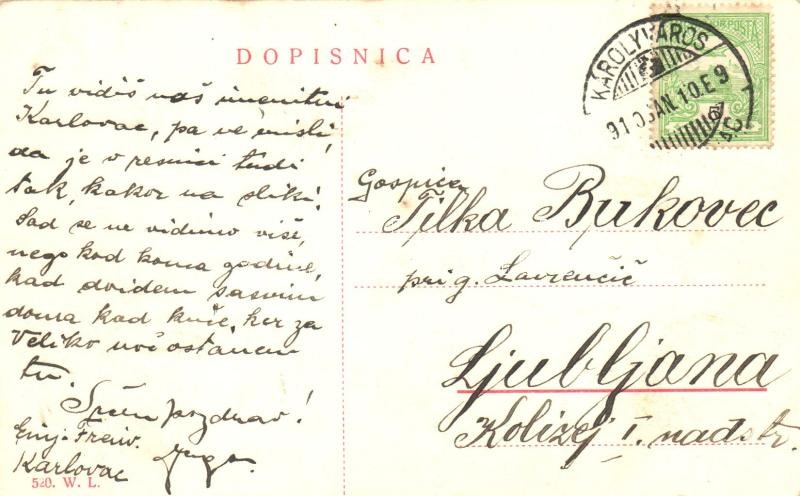 DOPISNICA
Tu vidiš vaš imenitni
Karlovac, pa ne misli,
da je v resnici tudi
tak, kakor na sliki!
Sad se ne vidimo više,
nego kod koma godine,
kad dvidem sasvim
doma kad kuće, ker za
Veliko noč ostanem
tu.
pozdrav!
Karlovac
520. W. L.
KÁROLYVÁROS
910 JAN. 10. E 9
Gospica
Tilka Bukovec
pri g. Lavrenčič
Ljubljana
Kolizej I. nadstr.